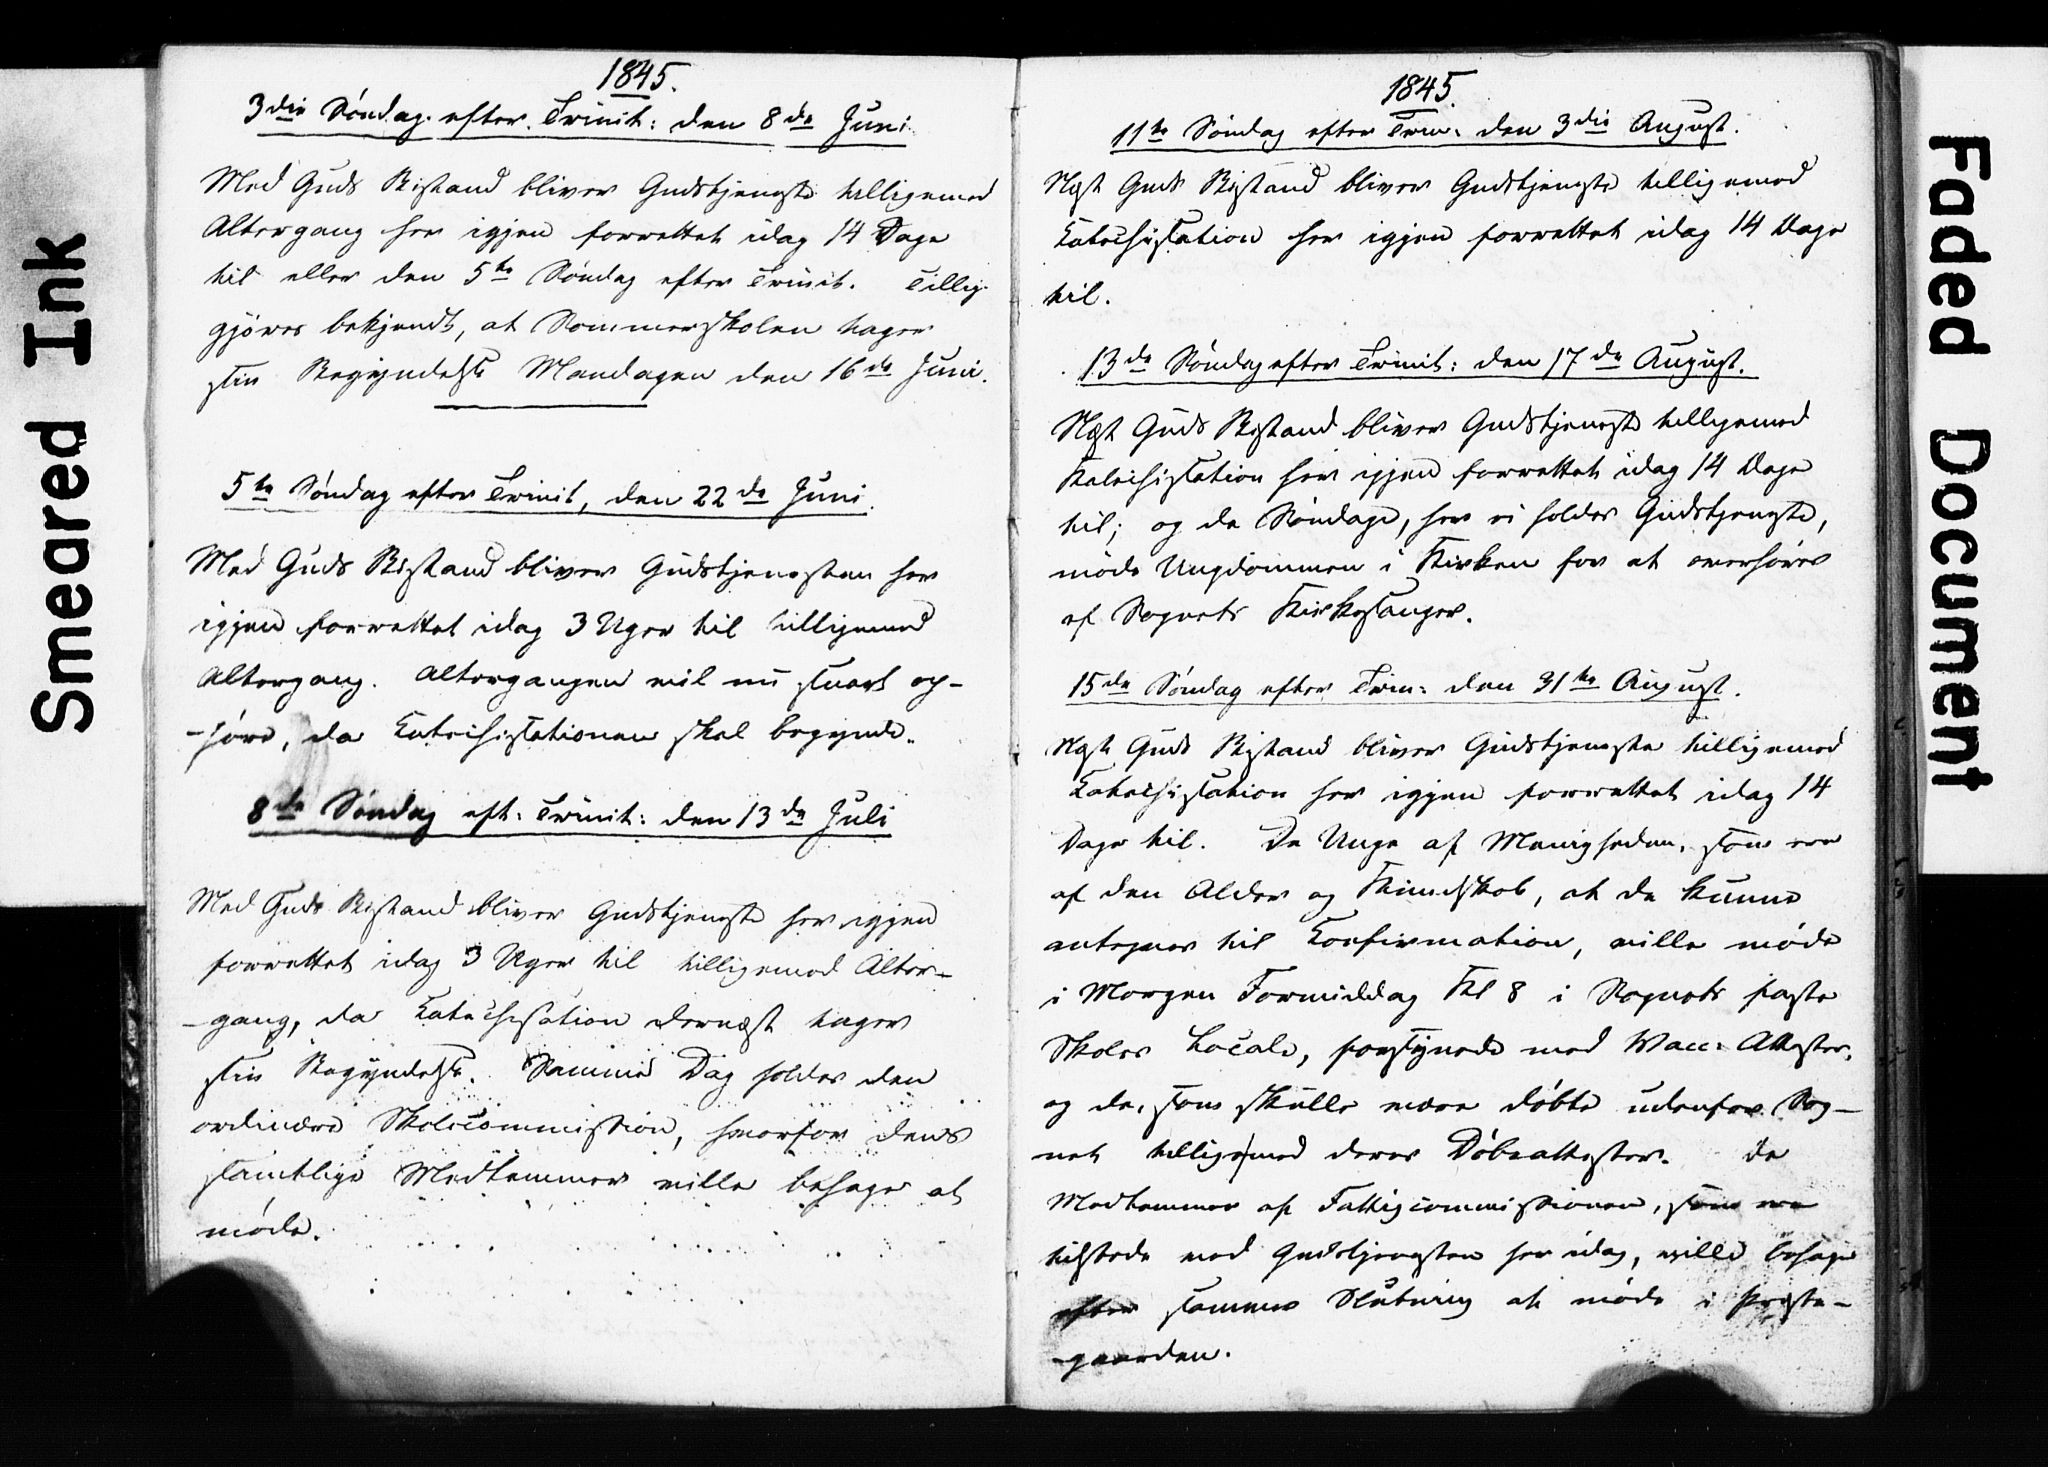 Smeared Ink
1845.
3die Søndag efter Trinit: den 8de Juni
Med Guds Bistand bliver Gudstjeneste tilligemed
Altergang her igjen forrettet idag 14 Dage
til eller den 5te Søndag efter Trinit. Tillig
gjöres bekjendt, at Sommerskolen tager
sin Begyndelse Mandagen den 16de Juni.
5te Søndag efter Trinit, den 22de Juni.
Med Guds Bistand bliver Gudstjenesten her
igjen forrettet idag 3 Uger til tilligemed
Altergang. Altergangen vil nu snart op-
-høre, da Catechisationen skal begynde.
8de Søndag eft: Trinit: den 13de Juli
Med Guds Bistand bliver Gudstjeneste her igjen
forrettet idag 3 Uger til tilligemed Alter-
-gang, da Catechisation dernæst tager
sin Begyndelse. Samme Dag holder den
ordinære Skolecommission, hvorfor dens
samtlige Medlemmer ville behage at
møde.
1845.
11te Søndag efter Trin: den 3die August.
Næst Guds Bistand bliver Gudstjeneste tilligemed
Catechisation her igjen forrettet idag 14 Dage
til.
13de Søndag efter Trinit: den 17de August.
Næst Guds Bistand bliver Gudstjeneste tilligemed
Katechisation her igjen forrettet idag 14 Dage
til; og de Søndage, her vi holder Gudstjeneste,
möde Ungdommen i Kirken for at overhöres
af Sognets Kirkesanger.
15de Søndag efter Trin: den 31te August.
Næst Guds Bistand bliver Gudstjeneste tilligemed
Catechisation her igjen forrettet idag 14
Dage til. De Unge af Menigheden, som ere
af den Alder og Kundskab, at de kunne
antegnes til Confirmation, ville møde
i Morgen Formiddag Kl 8 i Sognets faste
Skoles Locale, forsynede med Vacc: Attester,
og de, som skulle være døbte udenfor Sog-
net tilligemed deres Döbeattester. De
Medlemmer af Fattigcommissionen, som ere
tilstede ved Gudstjenesten her idag, ville behage
efter sammes Slutning at møde i Præste-
-gaarden.
Faded Document